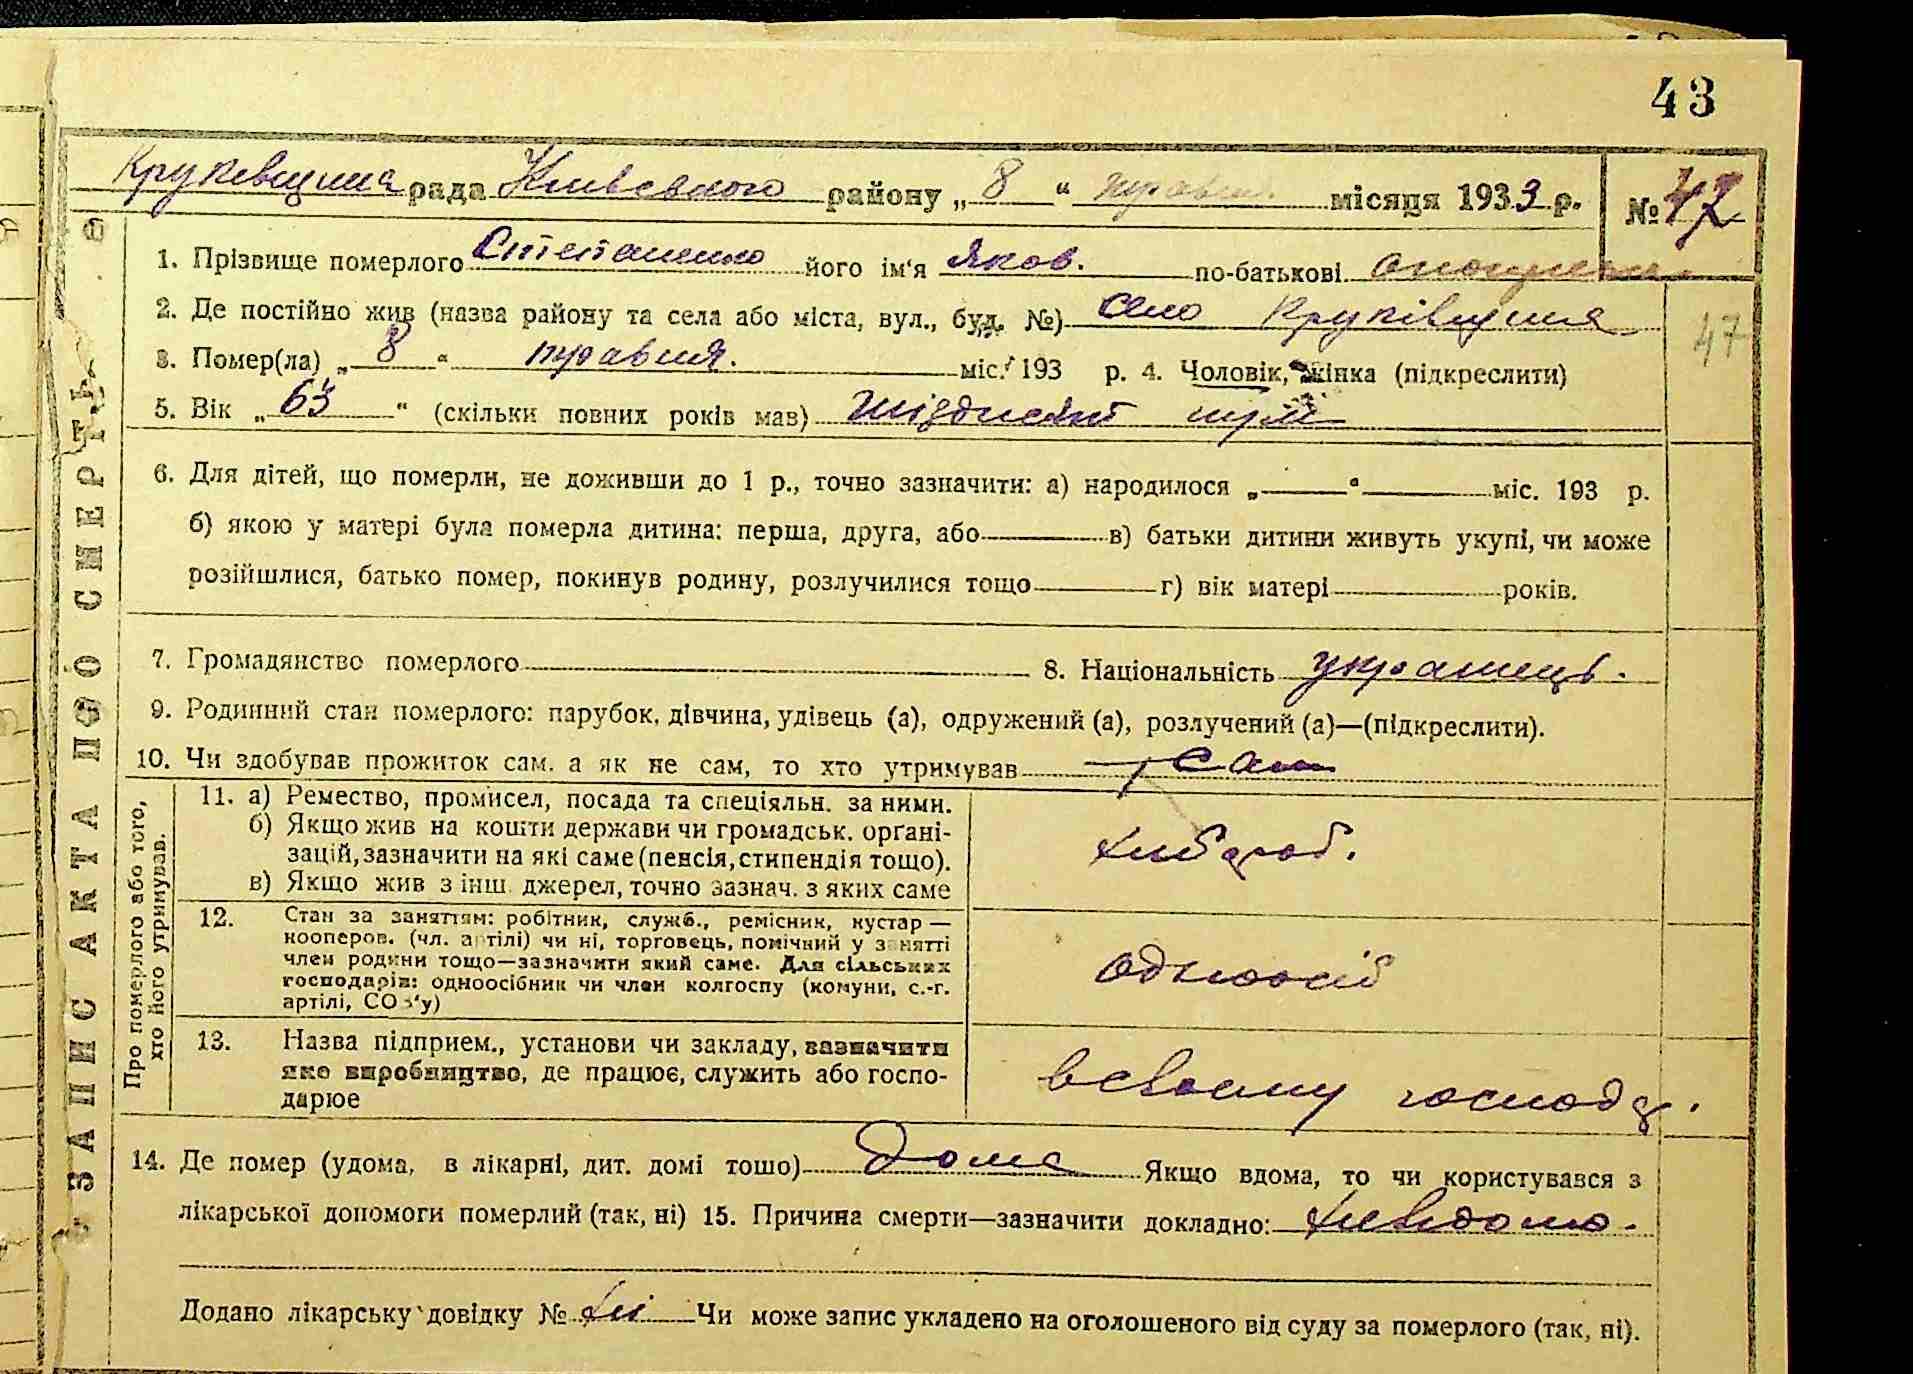 43
Круківщина рада Київського району „ 8 “ травня місяця 1933 р. № 47
1. Прізвище померлого Степаненко його ім‘я Яков. по-батькові
2. Де постійно жив (назва району та села або міста, вул., буд. №) село Круківщина
47
3. Помер(ла) „ 8 “ травня. міс. 193 р. 4. Чоловік, жінка (підкреслити)
5. Вік „ 63 “ (скільки повних років мав) шіздисят три
6. Для дітей, що померли, не доживши до 1 р., точно зазначити: а) народилося „ “ міс. 193 р.
б) якою у матері була померла дитина: перша, друга, або в) батьки дитини живуть укупі, чи може
розійшлися, батько помер, покинув родину, розлучилися тощо г) вік матері років.
7. Громадянство померлого 8. Національність украинець.
9. Родинний стан померлого: парубок, дівчина, удівець (а), одружений (а), розлучений (а)—(підкреслити).
10. Чи здобував прожиток сам, а як не сам, то хто утримував сам
Про померлого або того, хто його утримував.
11. а) Ремество, промисел, посада та спеціяльн. за ними.
б) Якщо жив на кошти держави чи громадськ. орґані-
зацій, зазначити на які саме (пенсія, стипендія тощо).
в) Якщо жив з інш. джерел, точно зазнач. з яких саме
хлібороб.
12. Стан за заняттям: робітник, служб., ремісник, кустар —
кооперов. (чл. артілі) чи ні, торговець, помічний у занятті
член родини тощо—зазначити який саме. Для сільських
господарів: одноосібник чи член колгоспу (комуни, с.-г.
артілі, СОЗ‘у)
одноосіб
13. Назва підприєм., установи чи закладу, зазначити
яке виробництво, де працює, служить або госпо-
дарює
всвоему господ.
14. Де помер (удома, в лікарні, дит. домі тощо) Дома Якщо вдома, то чи користувався з
лікарської допомоги померлий (так, ні) 15. Причина смерти—зазначити докладно: невідомо.
Додано лікарську довідку № ні Чи може запис укладено на оголошеного від суду за померлого (так, ні).
ЗАПИС АКТА ПРО СМЕРТЬ